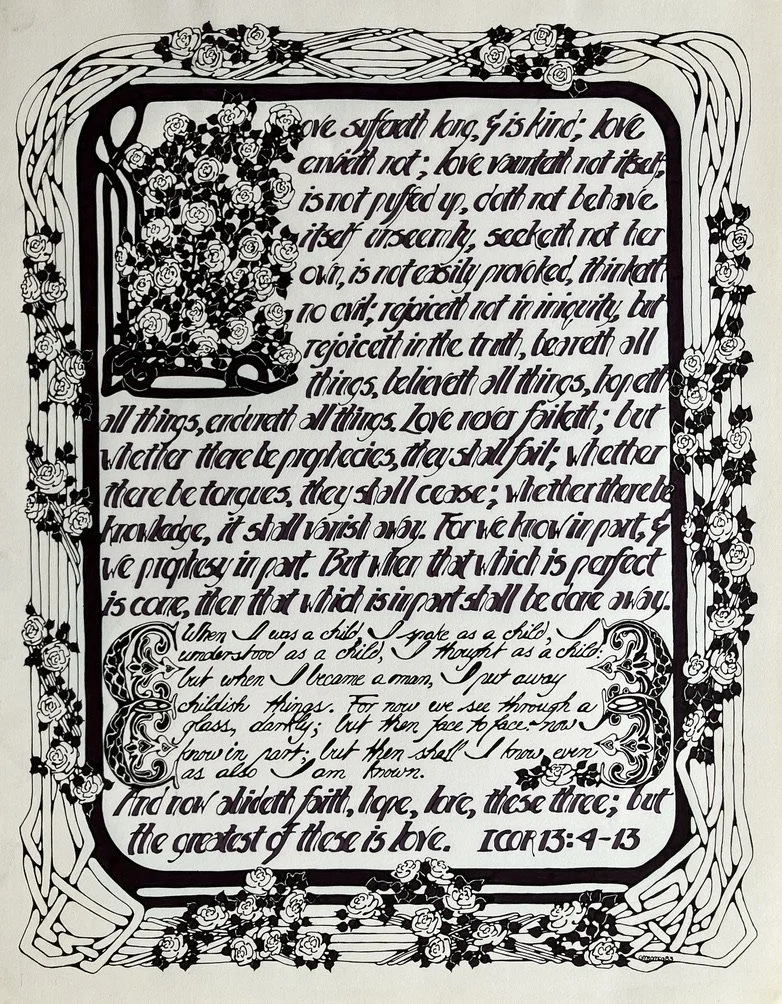 Love suffereth long, & is kind; love
envieth not; love vaunteth not itself,
is not puffed up, doth not behave
itself unseemly, seeketh not her
own, is not easily provoked, thinketh
no evil; rejoiceth not in iniquity, but
rejoiceth in the truth, beareth all
things, believeth all things, hopeth
all things, endureth all things. Love never faileth; but
whether there be prophecies, they shall fail; whether
there be tongues, they shall cease; whether there be
knowledge, it shall vanish away. For we know in part, &
we prophesy in part. But when that which is perfect
is come, then that which is in part shall be done away.
When I was a child, I spake as a child, I
understood as a child, I thought as a child:
but when I became a man, I put away
childish things. For now we see through a
glass, darkly; but then face to face: now I
know in part; but then shall I know even
as also I am known.
And now abideth faith, hope, love, these three; but
the greatest of these is love. I COR 13:4-13